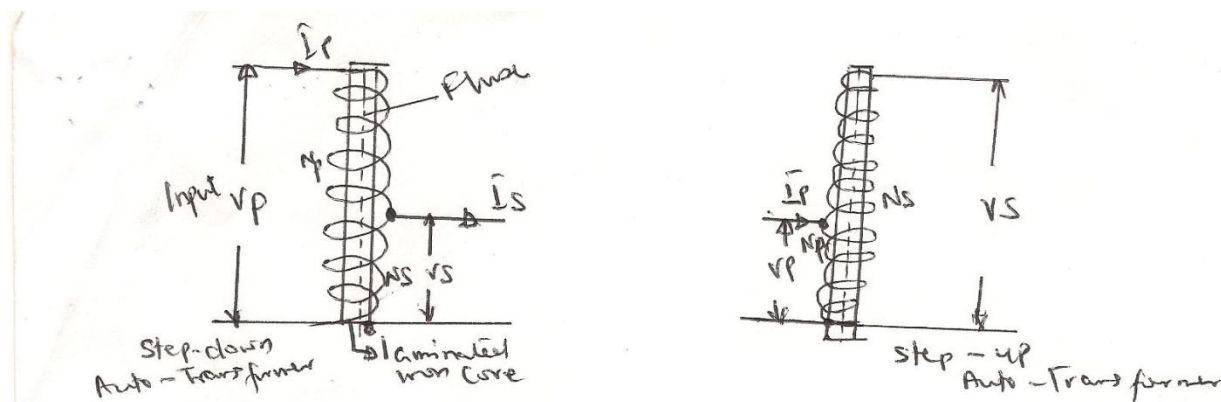 Ip
Flux
Np
Input Vp
Is
Ns
Vs
Step-down
Auto-Transformer
laminated
iron core
Ip
Ns
Vs
Np
Vp
Step-up
Auto-Transformer